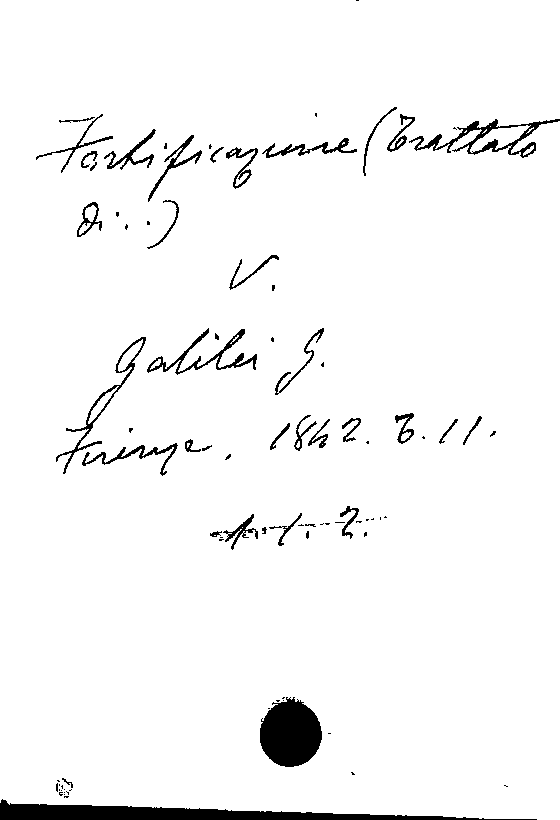 Fortificazione (Trattato
di...)
V.
Galilei G.
Firenze. 1842. T. 11.
1. 2.